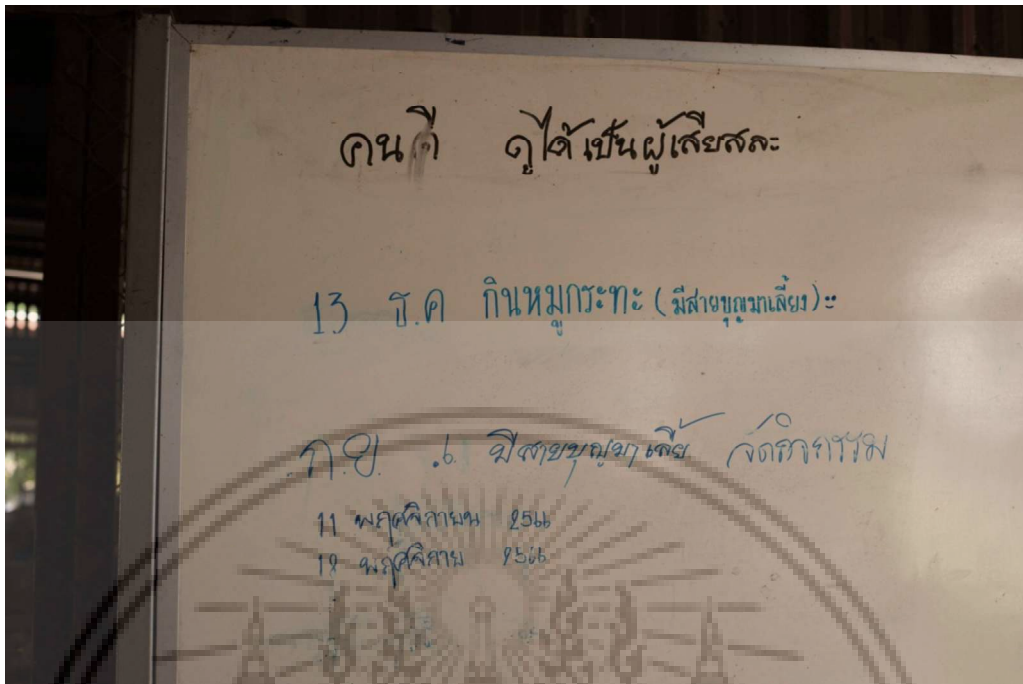 คนดี ดูได้เป็นผู้เสียสละ
13 ธ.ค กินหมูกระทะ (มีสายบุญมาเลี้ยง)
มีสายบุญมาเลี้ย จัดกิจกรรม
11 พฤศจิกายน 2566
12 พฤศจิกาย 2566